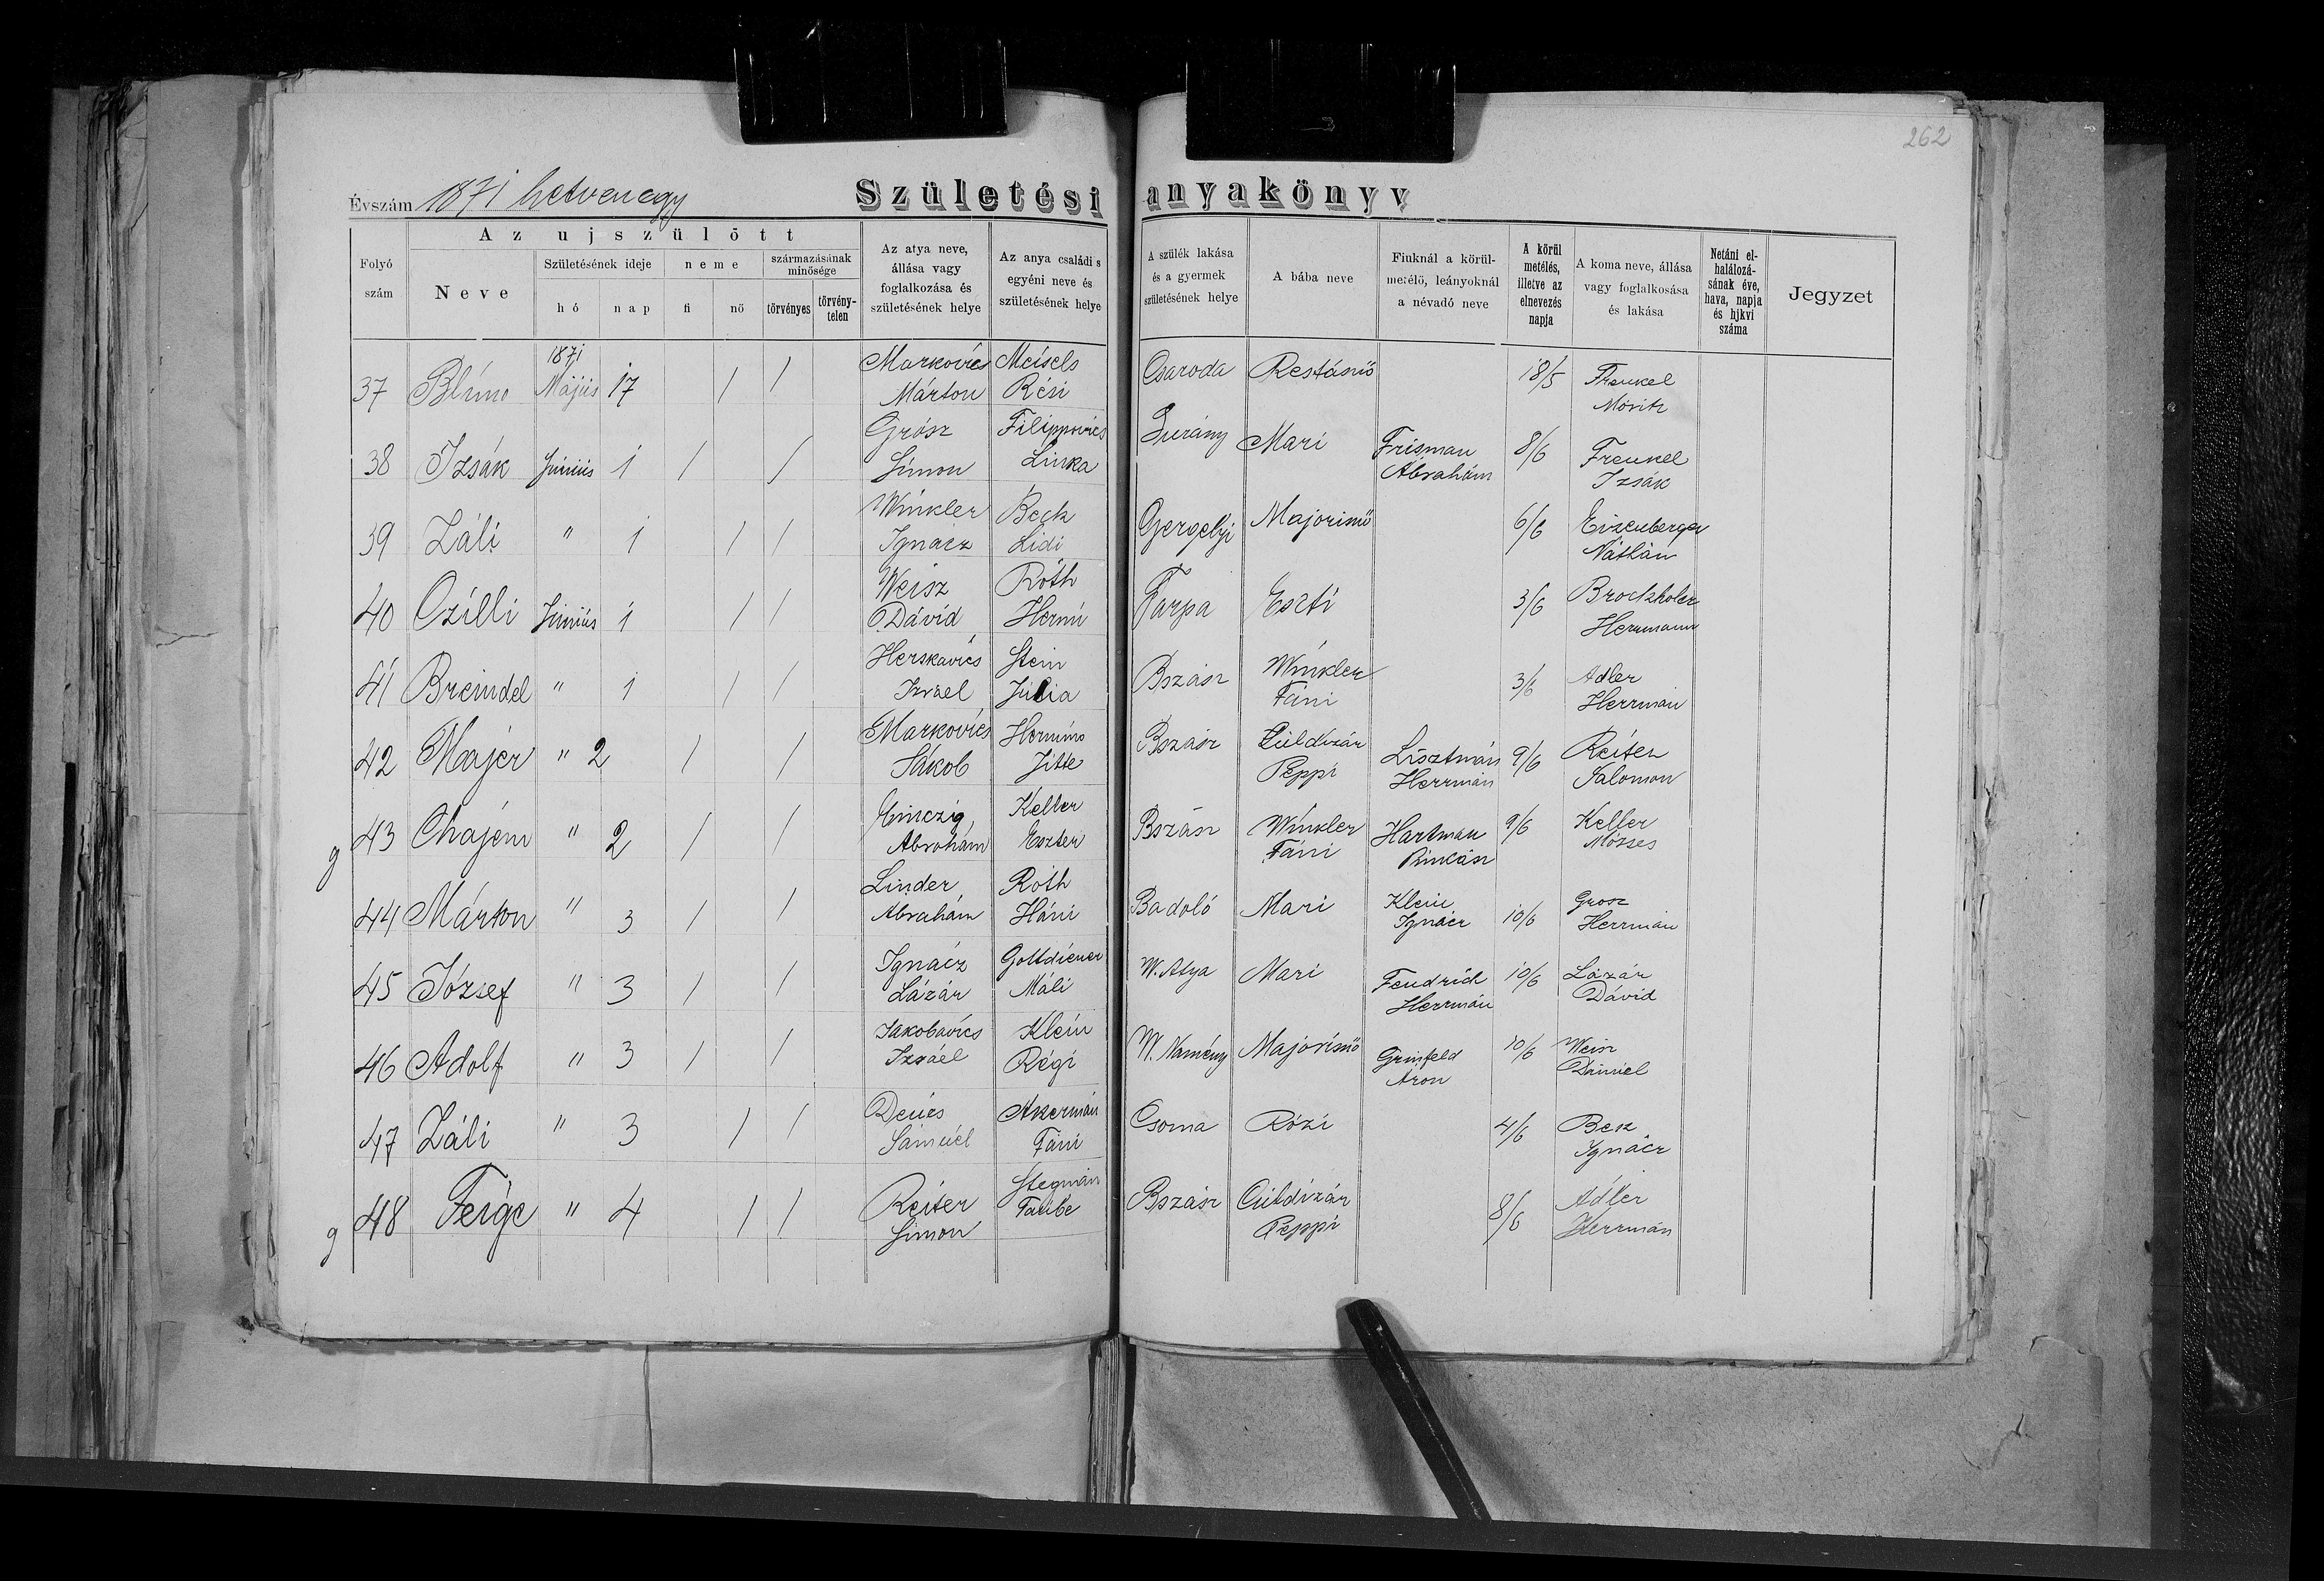 262
Évszám 1871 hetvenegy Születési anyakönyv
Az ujszülött
Folyó szám
Neve
Születésének ideje
hó
nap
neme
fi
nő
származásának minősége
törvényes
törvény-telen
Az atya neve, állása vagy foglalkozása és születésének helye
Az anya családi s egyéni neve és születésének helye
A szülék lakása és a gyermek születésének helye
A bába neve
Fiuknál a körül-metélő, leányoknál a névadó neve
A körül metélés, illetve az elnevezés napja
A koma neve, állása vagy foglalkosása és lakása
Netáni el-halálozá-sának éve, hava, napja és hjkvi száma
Jegyzet
37 1871 Május 17 / / Markovics Márton Meisels Rési Csaroda 18/5 Frenkel Móritz
38 Izsák Június 1 / / Grósz Simon Filippovics Linka Surány Mari Frisman Ábrahám 8/6 Frenkel Izsák
39 Záli " 1 / / Winkler Ignácz Beck Lidi Gergelyi Majorisnő 6/6 Eizenberger Náthán
40 Czilli Június 1 / / Weisz Dávid Róth Hermi Tarpa Eszti 3/6 Brockholer Herrmann
41 Breindel " 1 / / Herskovics Izráel Stein Júlia Bszász Winkler Fáni 3/6 Adler Herrmán
42 Majer " 2 / / Markovics Jákob Jitte Bszász Peppi Lisztmán Herrmán 9/6 Reiter Salomon
g 43 Chajem " 2 / / Abrahám Keller Eszter Bszász Winkler Fáni Hartman Pinkász 9/6 Keller Mózses
44 Márton " 3 / / Linder Abrahám Róth Háni Badoló Mari Klein Ignácz 10/6 Grosz Herrmán
45 József " 3 / / Ignácz Lázár Goltdiener Máli W. Atya Mari Fendrich Herrmán 10/6 Lázár Dávid
46 Adolf " 3 / / Jakobovics Izráel Klein Régi W. Namény Majorisnő Grinfeld Áron 10/6 Weisz Dániel
47 Záli " 3 / / Sámúel Akermán Fáni Csoma Rózi 4/6 Bek Ignácz
g 48 Feige " 4 / / Reiter Simon Stegmán Taube Bszász Peppi 8/6 Adler Herrmán